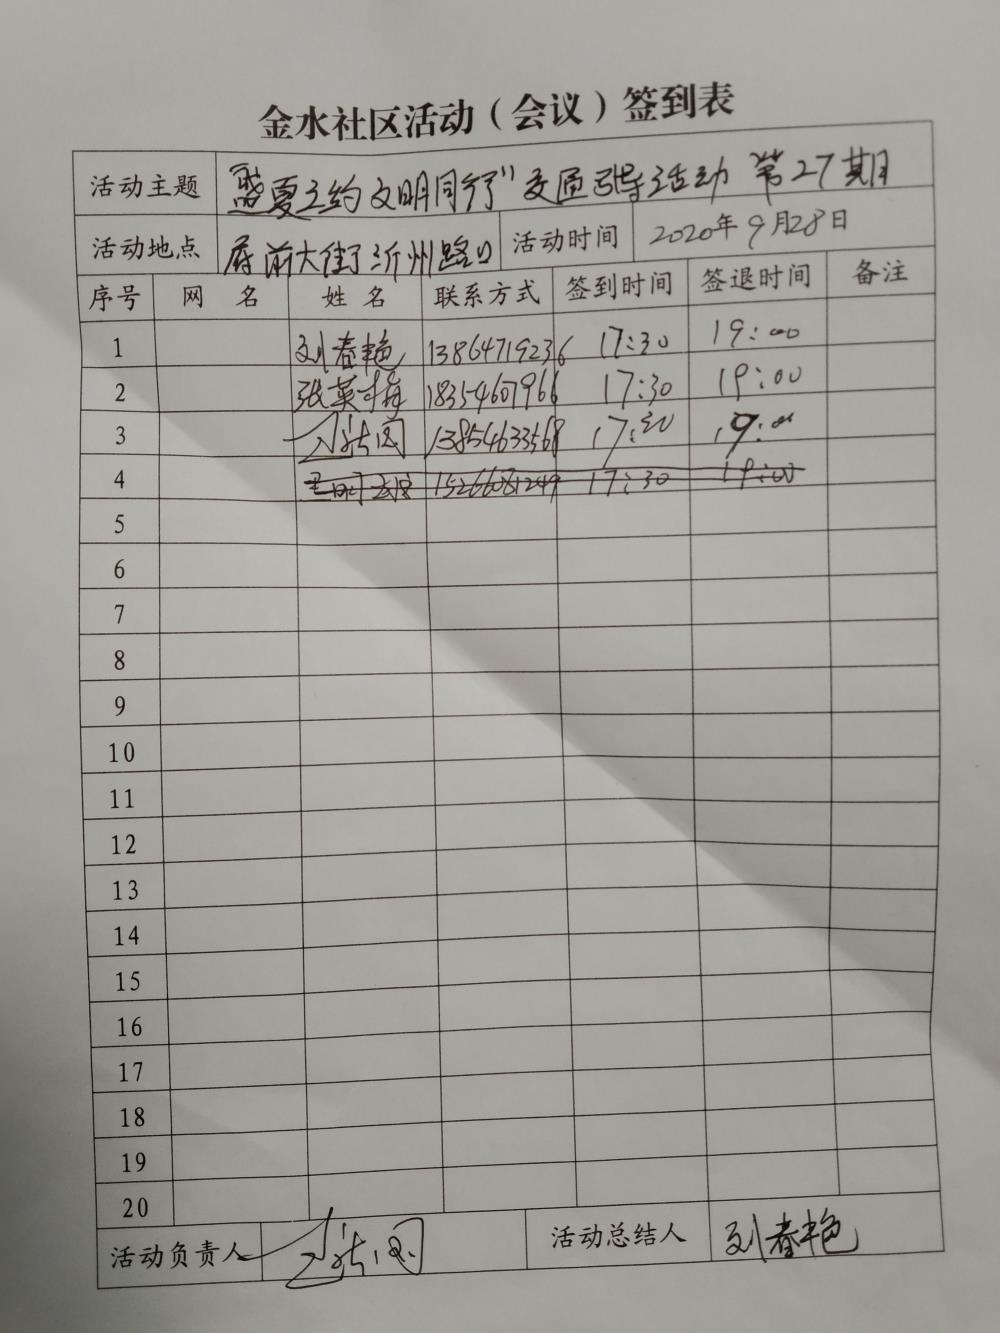 金水社区活动（会议）签到表
活动主题 盛夏之约 文明同行" 交通引导活动 第27期
活动地点 府前大街沂州路口 活动时间 2020年9月28日
序号 网 名 姓 名 联系方式 签到时间 签退时间 备注
1 刘春艳 13864719236 17:30 19:00
2 张英梅 18354607966 17:30 19:00
3 13854633568 17:30 19:00
4 15266081249 17:30 19:00
5
6
7
8
9
10
11
12
13
14
15
16
17
18
19
20
活动负责人 活动总结人 刘春艳